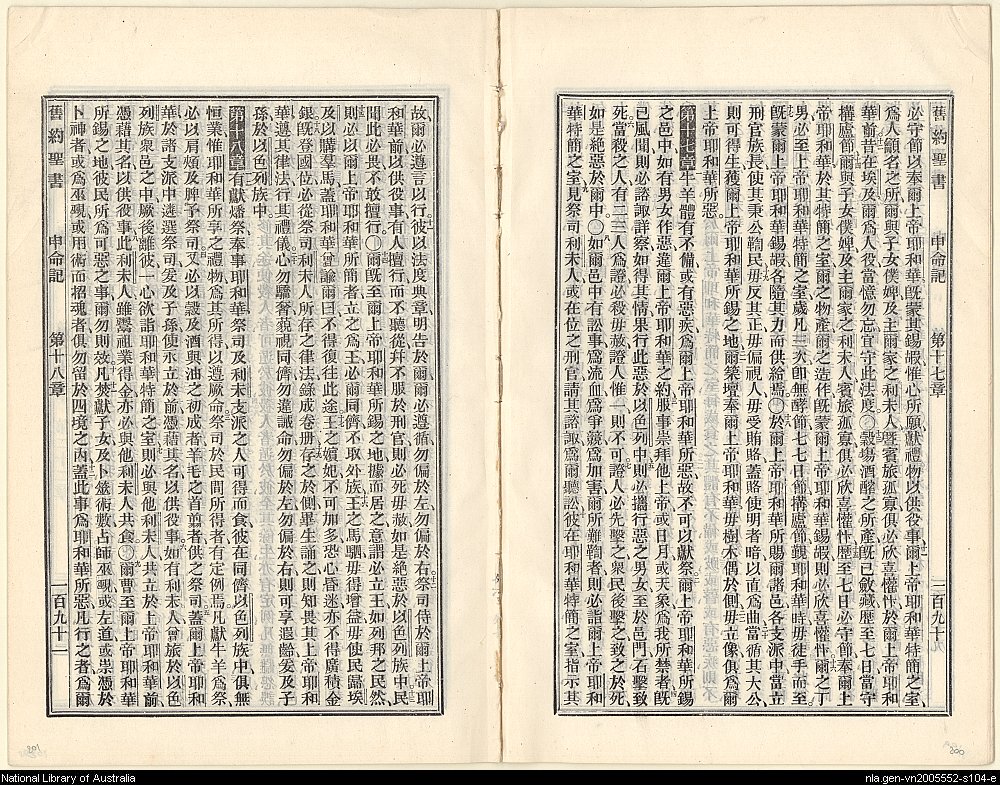 舊約聖書 申命記 第十七章
必守節以奉爾上帝耶和華旣蒙其錫嘏惟心所願獻禮物以供役事爾上帝耶和華特簡之室
爲人籲名之所爾與子女僕婢及主爾家之利未人曁賓旅孤寡俱必欣喜懽忭於爾上帝耶和
華前昔在埃及爾爲人役當憶勿忘宜守此法度○穀場酒醡之所產旣已斂藏歷至七日當守
構廬節爾與子女僕婢及主爾家之利未人賓旅孤寡俱必欣喜懽忭歷至七日必守節奉爾上
帝耶和華於其特簡之室爾之物產爾之造作旣蒙爾上帝耶和華錫嘏則必欣喜懽忭爾之丁
男必至上帝耶和華特簡之室歲凡三次卽無酵節七七日節構廬節覲耶和華時毋徒手而至
旣蒙爾上帝耶和華錫嘏各隨其力而供給焉○於爾上帝耶和華所賜爾諸邑各支派中當立
刑官族長使其秉公鞫民毋反其正毋偏視人毋受賄賂蓋賂使明者暗以直爲曲當循其大公
則可得生獲爾上帝耶和華所錫之地爾築壇奉爾上帝耶和華毋樹木偶於側毋立像俱爲爾
上帝耶和華所惡
第十七章 牛羊體有不備或有惡疾爲爾上帝耶和華所惡故不可以獻祭爾上帝耶和華所錫
之邑中如有男女作惡違爾上帝耶和華之約服事崇拜他上帝或日月或天象爲我所禁者旣
已風聞則必諮諏詳察如得其情果行此惡於以色列中則必攜行惡之男女至於邑門石擊致
死當殺之人有二三人爲證必殺毋赦證人惟一則不可證人必先擊之衆民後擊之致之於死
如是絕惡於爾中○如爾邑中有訟事爲流血爲爭競爲加害爾所難鞫者則必詣爾上帝耶和
華特簡之室見祭司利未人或在位之刑官請其諮諏爲爾聽訟彼在耶和華特簡之室指示其
故爾必遵言以行彼以法度典章明告於爾爾必遵循勿偏於左勿偏於右祭司侍於爾上帝耶
和華前以供役事有人擅行而不聽從幷不服於刑官則必死毋赦如是絕惡於以色列族中民
聞此必畏不敢擅行○爾旣至爾上帝耶和華所錫之地據而居之意謂必立王如列邦之民然
則必以爾上帝耶和華所簡者立之爲王必爾同儕不取外族王之馬駟毋得增益毋使民歸埃
及以購羣馬蓋耶和華曾諭爾曰不得復往此途王之嬪妃不可加多恐心昏迷亦不得廣積金
銀旣登國位必從祭司利未人所存之律法錄成卷册存之於側畢生誦之則知畏其上帝耶和
華遵其律法行其禮儀心勿驕奢藐視同儕勿違誡命勿偏於左勿偏於右則可享遐齡爰及子
孫於以色列族中
第十八章 有獻燔祭奉事耶和華祭司及利未支派之人可得而食彼在同儕以色列族中俱無
恒業惟耶和華所享之禮物爲其所得以遵厥命祭司於民間所得者有定例焉凡獻牛羊爲祭
必以肩頰及脾予祭司又必以穀及酒與油之初成者羊毛之首翦者供之祭司蓋爾上帝耶和
華於諸支派中遴選祭司爰及子孫使永立於前憑藉其名以供役事如有利未人曾旅於以色
列族衆邑之中厥後雖彼一心欲詣耶和華特簡之室則必與他利未人共立於上帝耶和華前
憑藉其名以供役事此利未人雖鬻祖業得金亦必與他利未人共食○爾曹至爾上帝耶和華
所錫之地彼民所爲可惡之事爾勿則效凡焚獻子女及卜筮術數占師巫覡或左道或祟憑於
卜神者或爲巫覡或用術而招魂者俱勿留於四境之內蓋此事爲耶和華所惡凡行之者爲爾
舊約聖書 申命記 第十八章
National Library of Australia
nla.gen-vn2005552-s104-e